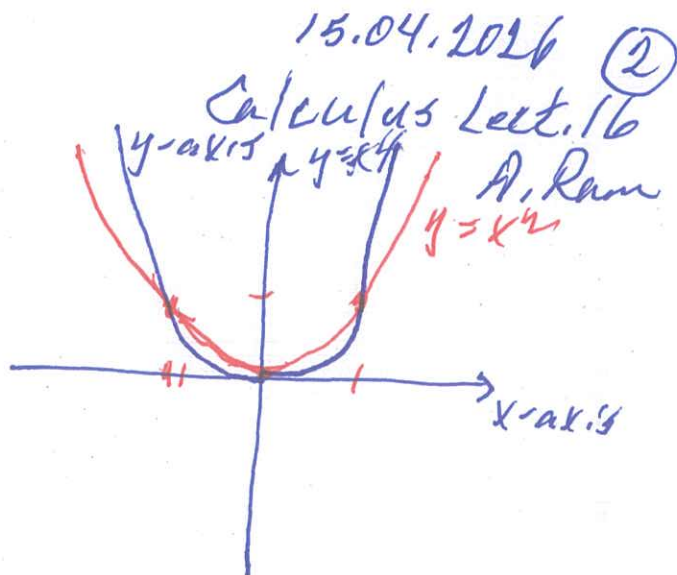 15.04.2026 ②
Calculus Lect. 16
A. Ram
y-axis
y=x⁴
y=x²
x-axis